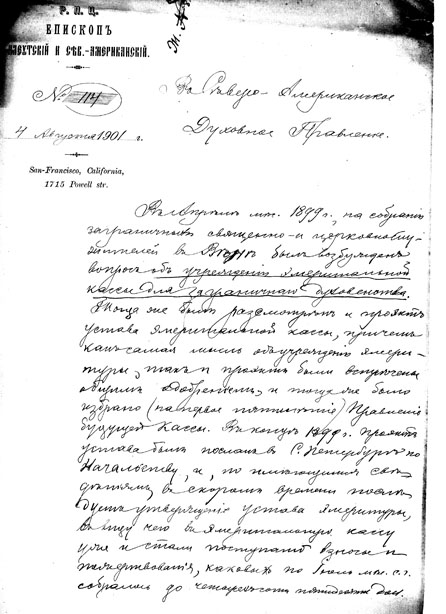 Р. П. Ц.
ЕПИСКОПЪ
АЛЕУТСКІЙ И СѢВ.-АМЕРИКАНСКІЙ.
№ 114
4 Августа 1901 г.
San-Francisco, California,
1715 Powell str.
Въ Сѣверо-Американское
Духовное Правленіе.
Въ Апрѣлѣ мѣс. 1899 г., на собраніи
заграничныхъ священно- и церковнослу-
жителей въ Вѣнѣ былъ возбужденъ
вопросъ объ учрежденіи эмеритальной
кассы для заграничнаго духовенства.
Тогда же былъ разсмотрѣнъ и проэктъ
устава эмеритальной кассы, причемъ
какъ самая мысль объ учрежденіи эмери-
туры, такъ и проэктъ были встрѣчены
общимъ одобреніемъ, и тогда же было
избрано (на первое пятилѣтіе) Правленіе
будущей кассы. Въ концѣ 1899 г. проэктъ
устава былъ посланъ въ С. Петербургъ по
Начальству, и, по имѣющимся свѣ-
дѣніямъ, въ скоромъ времени послѣ-
дуетъ утвержденіе устава эмеритуры,
въ виду чего въ эмеритальную кассу
уже и стали поступать взносы и
пожертвованія, каковыхъ по Іюль мѣс. с. г.
собралось до четырехсотъ пятидесяти дол.